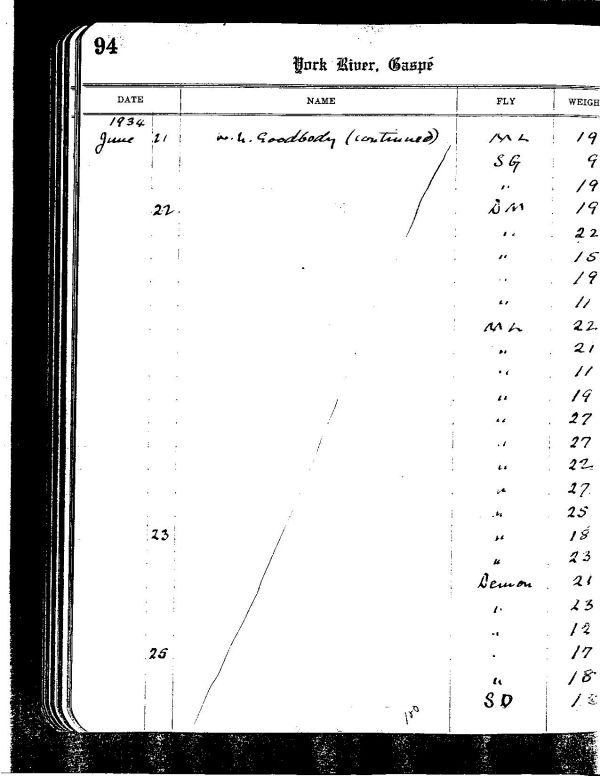 94
York River, Gaspé
DATE NAME FLY WEIGH
1934
June 21 W. h. Goodbody (continued) ML 19
SG 9
" 19
22 DM 19
" 22
" 15
" 19
" 11
ML 22
" 21
" 11
" 19
" 27
" 27
" 22
" 27
" 25
23 " 18
" 23
Demon 21
" 23
" 12
25 " 17
" 18
SD
100